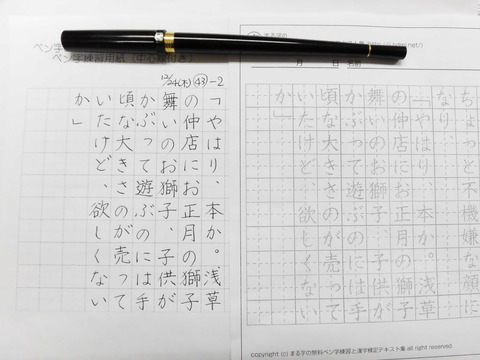 ペン字
ペン字練習用紙（中心線付き）
12/24(木) ㊸-2
「やはり、本か。浅草
の仲店にお正月の獅子
舞いのお獅子、子供が
かぶって遊ぶのには手
頃な大きさのが売って
いたけど、欲しくない
か」
まる字の
月 日 名前
ちょっと不機嫌な顔に
なり
「やはり、本か。浅草
の仲店にお正月の獅子
舞いのお獅子、子供が
かぶって遊ぶのには手
頃な大きさのが売って
いたけど、欲しくない
か」
copyright (c) まる字の無料ペン字練習と漢字検定テキスト集 all right reserved.